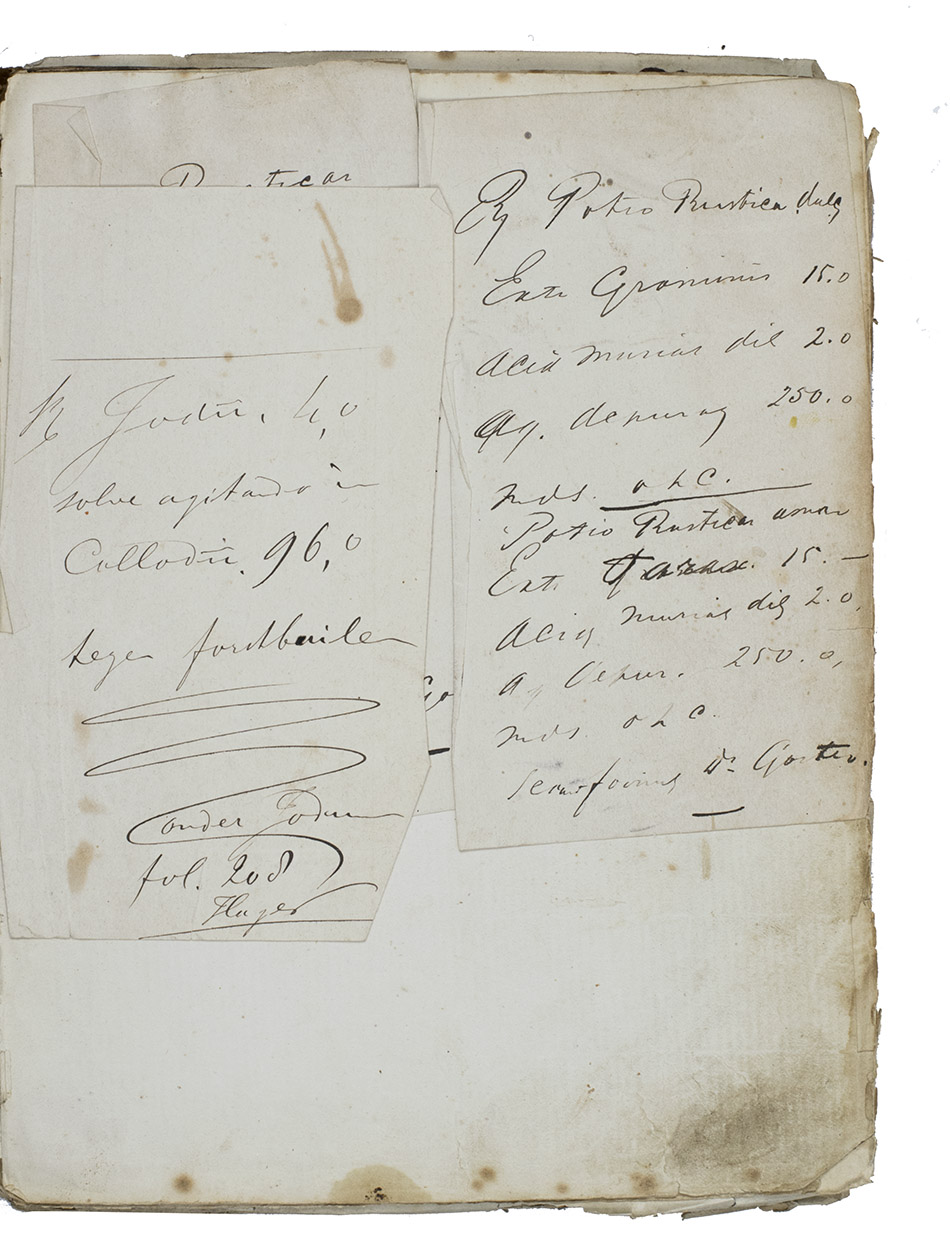 Rusticar
℞ Jodii. 4,0
solve agitando in
Collodii. 96,0
tegen
onder Jodum
fol. 208
Hager
Go
℞ Potio Rustica dulc
Extr Graminis 15.0
Acid murias dil 2.0
Aq. depurat 250.0
mds. o h C.
Potio Rustica amar
Extr Tarax. 15.—
Acid murias dil 2.0,
Aq Depur. 250.0,
mds. o h C.
Dr